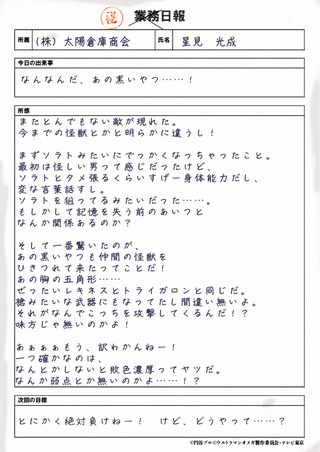 業務日報
所属 (株) 太陽倉庫商会 氏名 星見 光成
今日の出来事
なんなんだ、あの黒いやつ……!
所感
またとんでもない敵が現れた。
今までの怪獣とかと明らかに違うし!
まずソラトみたいにでっかくなっちゃったこと。
最初は怪しい男って感じだったけど、
ソラトとタメ張るくらいすげー身体能力だし、
変な言葉話すし。
ソラトを狙ってるみたいだった……。
もしかして記憶を失う前のあいつと
なんか関係あるのか?
そして一番驚いたのが、
あの黒いやつも仲間の怪獣を
ひきつれて来たってことだ!
あの胸の五角形……
ぜったいレキネスとトライガロンと同じだ。
槍みたいな武器にもなってたし間違い無いよ。
それがなんでこっちを攻撃してくるんだ!?
味方じゃ無いのかよ!
あぁぁぁもう、訳わかんねー!
一つ確かなのは、
なんとかしないと敗色濃厚ってヤツだ。
なんか弱点とか無いのかよ……!?
次回の目標
とにかく絶対負けねー! けど、どうやって……?
©円谷プロ©ウルトラマンオメガ製作委員会・テレビ東京